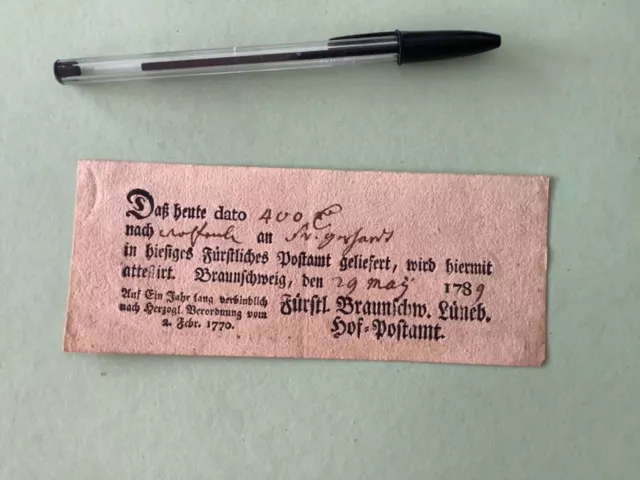 Daß heute dato 400
nach an Fr. Gerhardt
in hiesiges Fürstliches Postamt geliefert, wird hiermit
attestirt. Braunschweig, den 29 May 1789
Auf Ein Jahr lang verbindlich
nach Herzogl. Verordnung vom
2. Febr. 1770.
Fürstl. Braunschw. Lüneb.
Hof-Postamt.